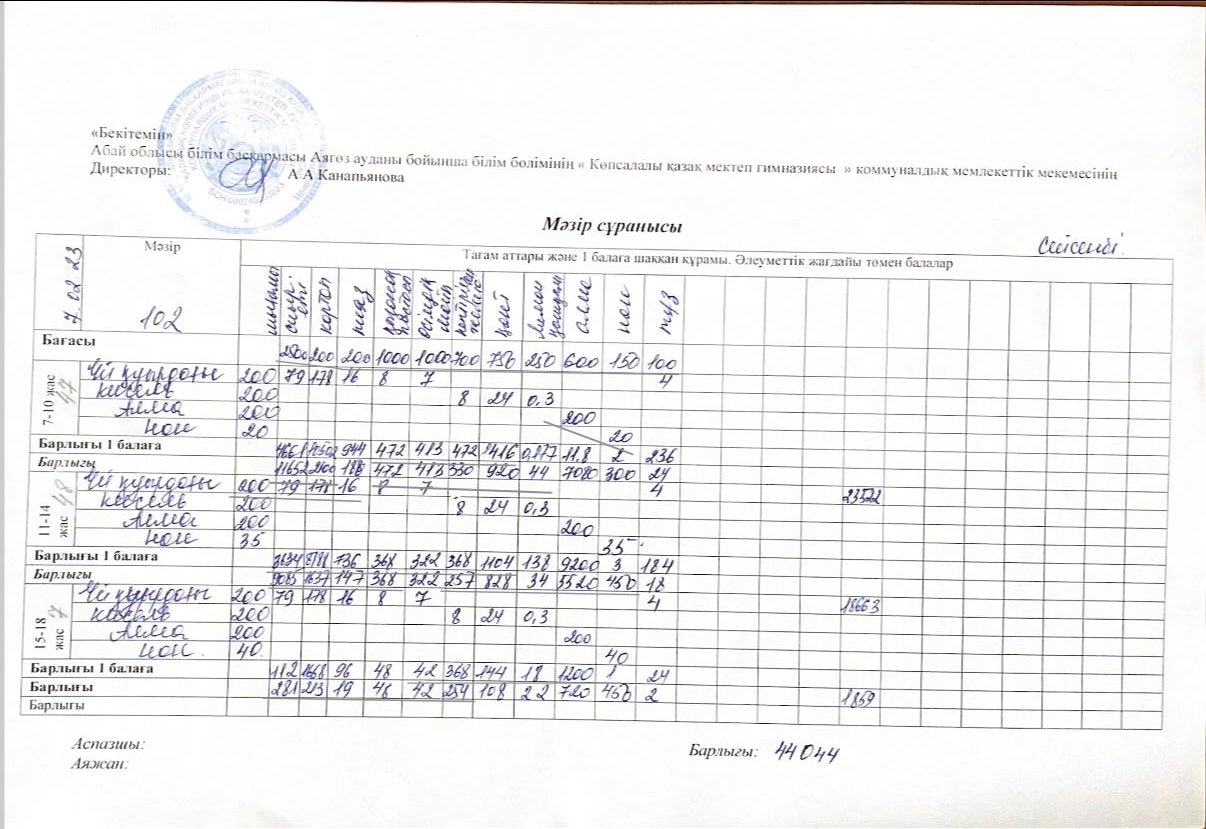 «Бекітемін»
Абай облысы білім басқармасы Аягөз ауданы бойынша білім бөлімінің « Көпсалалы қазақ мектеп гимназиясы » коммуналдық мемлекеттік мекемесінің
Директоры: А А Канапьянова
Мәзір сұранысы
Сейсенбі.
7.02.23 Мәзір Тағам аттары және 1 балаға шаққан құрамы. Әлеуметтік жағдайы төмен балалар
102 сиыр еті картоп пияз қызанақ пастасы өсімдік майы кептірілген жеміс қант лимон алма нан тұз
Бағасы 2500 200 200 1000 1000 700 750 250 600 150 100
7-10 жас 47
Үй қуырдағы 200 79 178 16 8 7 4
кисель 200 8 24 0,3
Алма 200 200
Нан 20 20
Барлығы 1 балаға 944 472 413 472 1416 11,8 2 236
Барлығы 11652 2100 188 472 413 330 920 44 7080 300 24 23522
11-14 жас 48
Үй қуырдағы 200 79 178 16 8 7 4
кисель 200 8 24 0,3
Алма 200 200
Нан 35 35
Барлығы 1 балаға 3634 8188 736 368 322 368 1104 138 9200 3 184
Барлығы 9085 1637 147 368 322 257 828 34 5520 450 18 18663
15-18 жас 7
Үй қуырдағы 200 79 178 16 8 7 4
кисель 200 8 24 0,3
Алма 200 200
Нан. 40. 40
Барлығы 1 балаға 1068 96 48 42 368 144 18 1200 1 24
Барлығы 281 213 19 48 42 254 108 22 720 450 2 1859
Барлығы
Аспазшы: Барлығы: 44044
Аяжан: